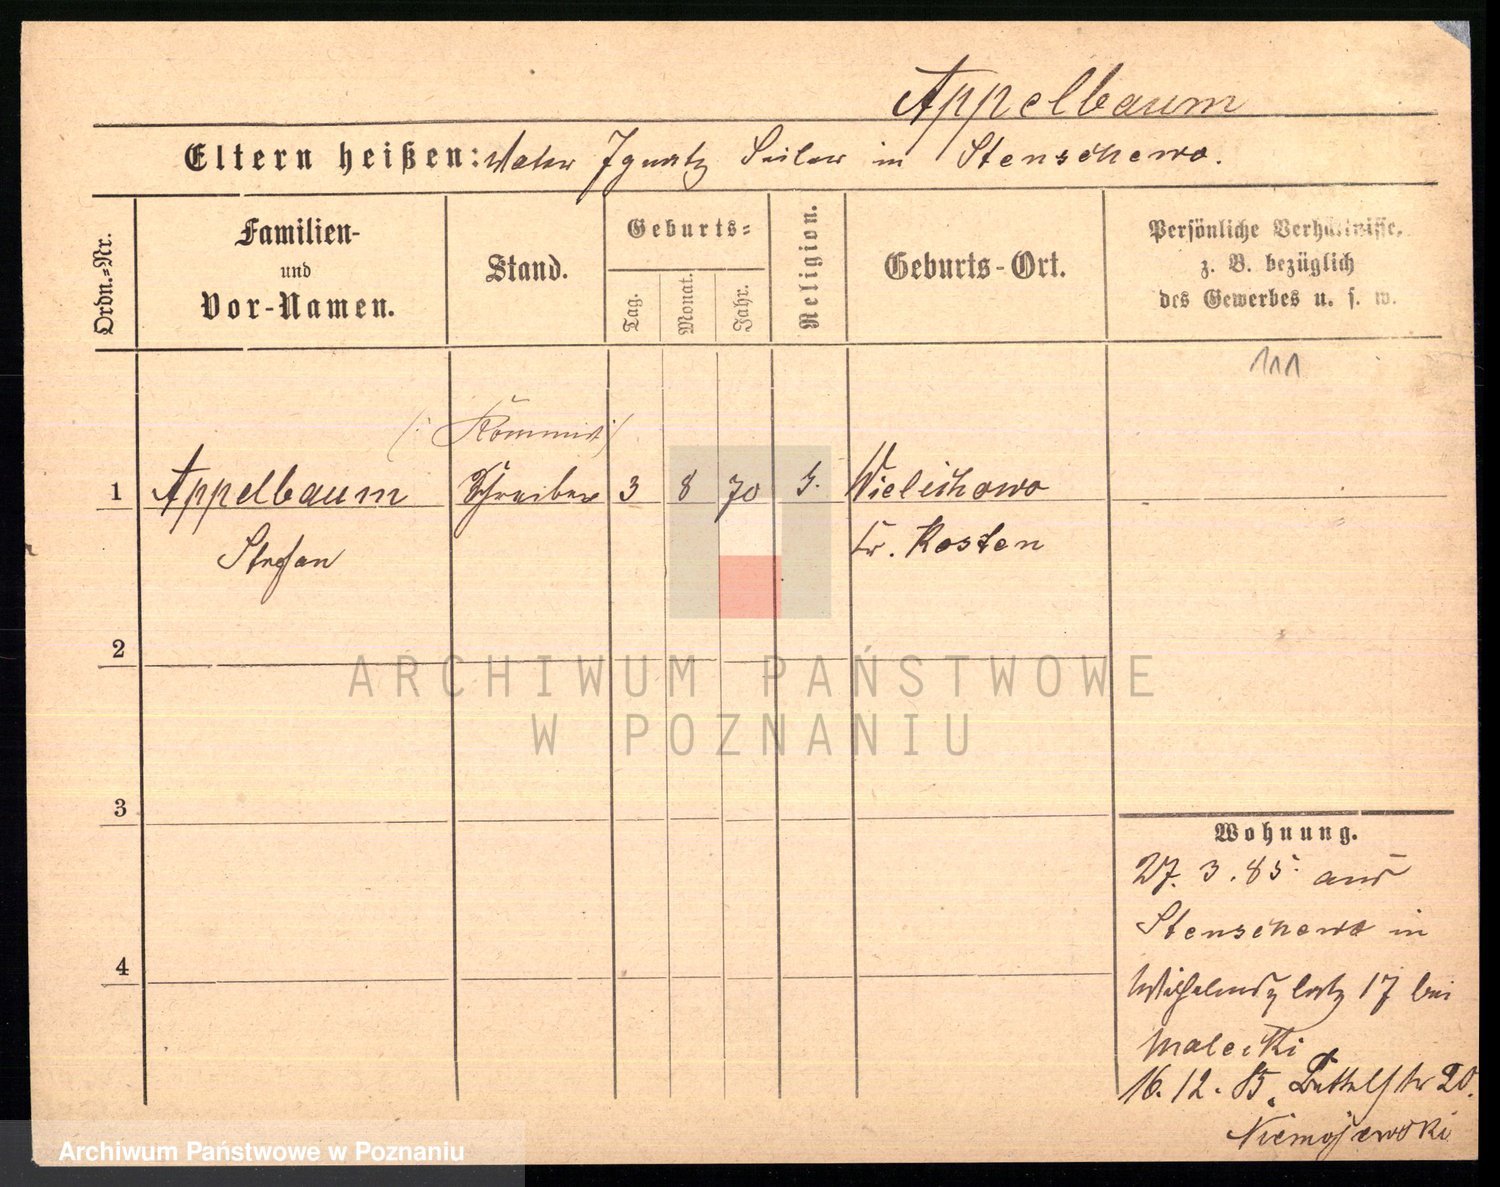 Appelbaum
Eltern heißen: Vater Ignatz in Stenschewo.
Ordn.-Nr.
Familien-
und
Vor-Namen.
Stand.
Geburts-
Tag.
Monat.
Jahr.
Religion.
Geburts-Ort.
Persönliche Verhältnisse,
z. B. bezüglich
des Gewerbes u. s. w.
111
1 Appelbaum Schreiber 3 8 70 Wielichowo
Stefan Kr. Kosten
2
3
4
ARCHIWUM PAŃSTWOWE
W POZNANIU
Wohnung.
27. 3. 85. aus
Stenschewo in
Wilhelmsplatz 17 bei
Malecki
16. 12. 85. 20.
Niemojewski
Archiwum Państwowe w Poznaniu